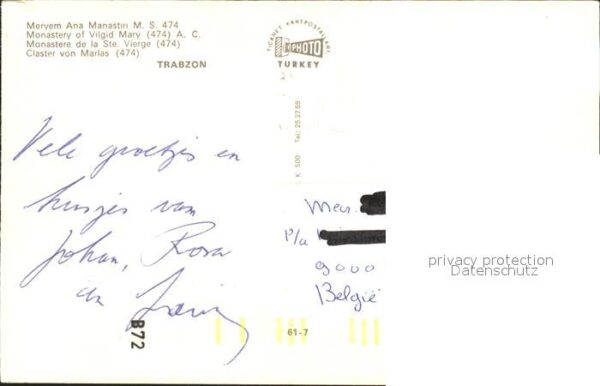 Meryem Ana Manastırı M. S. 474
Monastery of Vilgid Mary (474) A. C.
Monastere de la Ste. Vierge (474)
Claster von Marlas (474)
TRABZON
TİCARET KARTPOSTALLARI
PHOTO
TURKEY
K 500 Tel: 25 37 59
Vele groetjes en
kusjes van
Johan, Rosa
en
Mevr.
P/a
9000
België
privacy protection
Datenschutz
B72
61-7